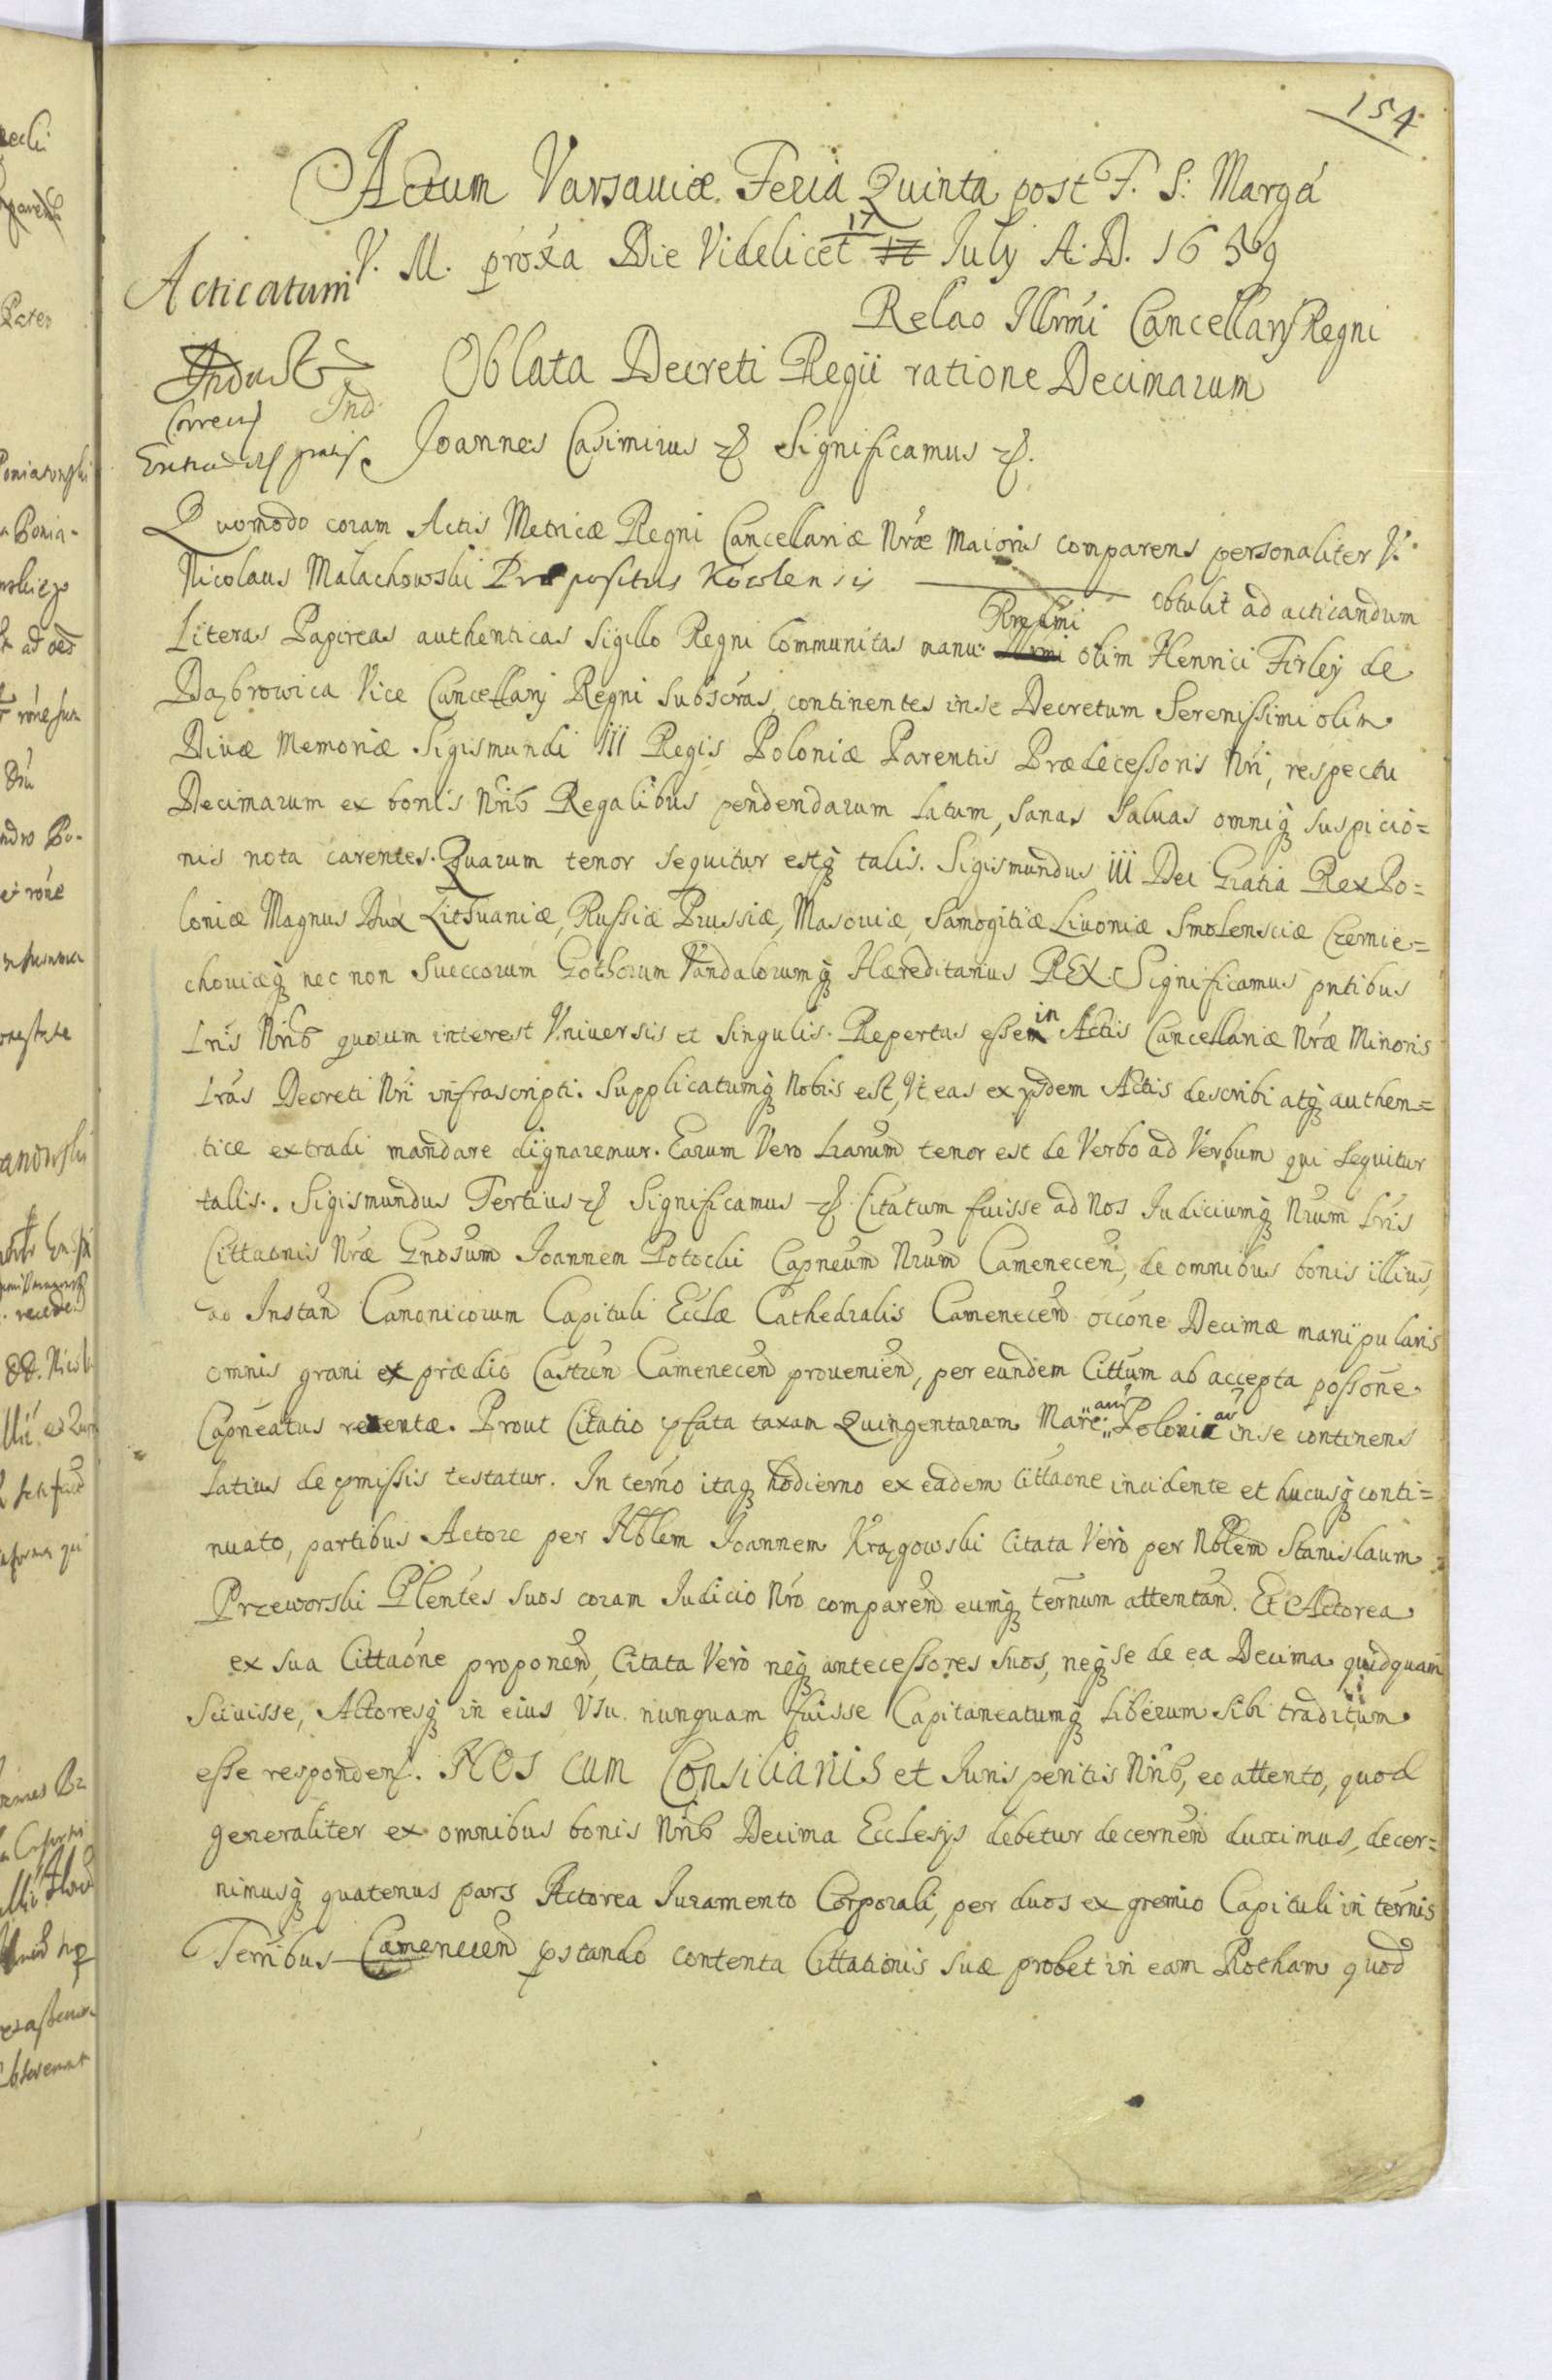 154
Actum Varsauiæ Feria Quinta post F. S. Margá
V. M. próxa Die Videlicet 17 July A. D. 1659
Acticatum
Relao Illrmi Cancellarij Regni
Oblata Decreti Regii ratione Decimarum
Ind
Joannes Casimirus Significamus
Quomodo coram Actis Metricæ Regni Cancellariæ Nræ Maioris comparens personaliter V.
Nicolaus Małachowski Præpositus Kowlensis obtulit ad acticandum
Literas Papireas authenticas Sigillo Regni Communitas manu Rmi olim Henrici Firley de
Dąbrowica Vice Cancellarij Regni subscras, continentes in se Decretum Serenissimi olim
Diuæ Memoriæ Sigismundi III Regis Poloniæ Parentis Prædecessoris Nri, respectu
Decimarum ex bonis Nrib Regalibus pendendarum latum, sanas saluas omniq suspicio=
nis nota carentes. Quarum tenor sequitur estq talis. Sigismundus III Dei Gratia Rex Po=
loniæ Magnus Dux Lithuaniæ, Russiæ Prussiæ, Masouiæ, Samogitiæ Liuoniæ Smolensciæ Czernie=
chouiæq nec non Sueccorum Gothorum Vandalorumq Hæreditarius REX. Significamus pntibus
Lris Nrib quorum interest Vniversis et Singulis. Repertas esse in Actis Cancellariæ Nræ Minoris
Lras Decreti Nri infrascripti. Supplicatumq Nobis est, Vt eas ex ysdem Actis describi atq authen=
tice extradi mandare dignaremur. Earum Vero Lrarum tenor est de Verbo ad Verbum qui sequitur
talis. Sigismundus Tertius Significamus Citatum fuisse ad Nos Iudiciumq Nrum Lris
Cittaonis Nræ Gnosum Joannem Potocki Capneum Nrum Camenecen, de omnibus bonis illius,
ad Instan Canonicorum Capituli Ecclæ Cathedralis Camenecen occone Decimæ manipularis
omnis grani ex prædio Castren Camenecen prouenien, per eundem Cittum ab accepta possone
Capneatus retentæ. Prout Citatio pfata taxam Quingentarum Marc: Poloni in se continens
latius de pmissis testatur. In terno itaq hodierno ex eadem Cittaone incidente et hucusq conti=
nuato, partibus Actore per Nblem Joannem Krągowski Citata Vero per Nblem Stanislaum
Przeworski Plentes suos coram Iudicio Nro comparen eumq ternum attentan. Et Actorea
ex sua Cittaone proponen, Citata Vero neq antecessores suos, neq se de ea Decima quidquam
Sciuisse, Actoresq in eius Vsu nunquam fuisse Capitaneatumq Liberum sibi traditum
esse responden. NOS cum Consiliariis et Juris peritis Nrib, eo attento, quod
generaliter ex omnibus bonis Nrib Decima Ecclesijs debetur decernen duximus, decer=
nimusq quatenus pars Actorea Iuramento Corporali, per duos ex gremio Capituli in ternis
Terribus Camenecen pstando contenta Cittationis suæ probet in eam Rotham quod